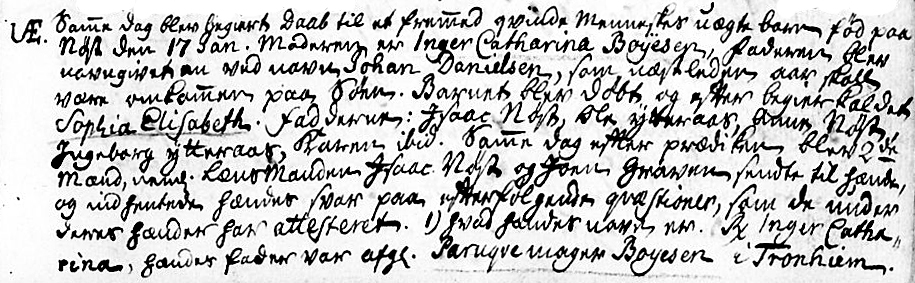 UÆ. Samme dag blev begiert Daab til et fremmed qvinde Menneskes uægte barn fød paa
Nøst den 17 Jan. Moderen er Inger Catharina Boÿesen, Faderen blev
navngiven en ved navn Johan Danielsen, som næstleden aar skall
være omkommen paa Søen. Barnet blev døbt og efter begier kaldet
Sophia Elisabeth. Fadderne: Isaac Nøst, Ole ÿtteraas, Anne Nøst
Ingeborg ÿtteraas, Karen ibid. Samme dag efter prædiken blev 2de
Mænd, neml. LensManden Isaac Nøst og Joen Graven sendte til hænde,
og indhentede hændes svar paa efterfølgende qvæstioner, som de under
deres hænder har attesteret. 1) hvad hændes navn er. Rx Inger Catha-
rina, hændes fader var afgl. Paruqvemager Boyesen i Tronhiem.